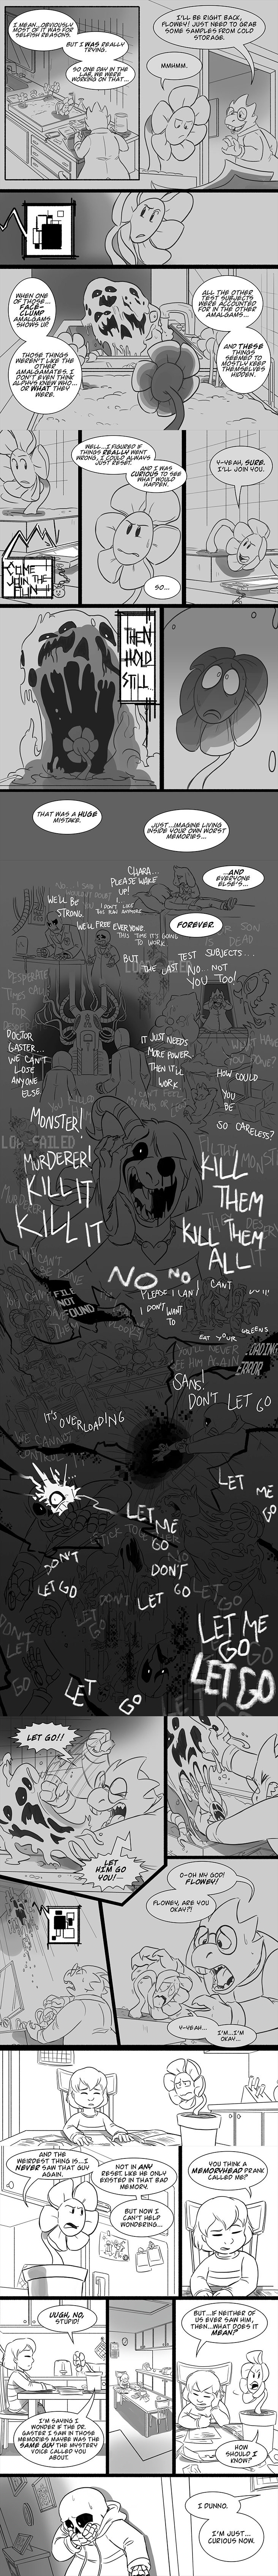 I MEAN...OBVIOUSLY
MOST OF IT WAS FOR
SELFISH REASONS.
BUT I WAS REALLY
TRYING.
SO ONE DAY IN THE
LAB, WE WERE
WORKING ON THAT...
I'LL BE RIGHT BACK,
FLOWEY! JUST NEED TO GRAB
SOME SAMPLES FROM COLD
STORAGE.
MMHMM.
WHEN ONE
OF THOSE...
FACE-
CLUMP
AMALGAMS
SHOWS UP.
THOSE THINGS
WEREN'T LIKE THE
OTHER
AMALGAMATES. I
DON'T EVEN THINK
ALPHYS KNEW WHO...
OR WHAT THEY
WERE.
ALL THE OTHER
TEST SUBJECTS
WERE ACCOUNTED
FOR IN THE OTHER
AMALGAMS...
AND THESE
THINGS
SEEMED TO
MOSTLY KEEP
THEMSELVES
HIDDEN.
COME
JOIN THE
FUN
WELL...I FIGURED IF
THINGS REALLY WENT
WRONG, I COULD ALWAYS
JUST RESET.
AND I WAS
CURIOUS TO SEE
WHAT WOULD
HAPPEN.
SO...
Y-YEAH, SURE.
I'LL JOIN YOU.
THEN
HOLD
STILL...
THAT WAS A HUGE
MISTAKE.
JUST...IMAGINE LIVING
INSIDE YOUR OWN WORST
MEMORIES...
...AND
EVERYONE
ELSE'S...
FOREVER.
CHARA...
PLEASE WAKE
UP!
WE'LL BE
STRONG.
I DON'T LIKE
THIS PLAN ANYMORE
WE'LL FREE EVERYONE.
THIS TIME IT'S GOING
TO WORK.
BUT THE LAST
TEST SUBJECTS...
NO... NOT
YOU TOO!
DESPERATE
TIMES CALL
FOR
DOCTOR
GASTER...
WE CAN'T
LOSE
ANYONE
ELSE
IT JUST NEEDS
MORE POWER.
THEN IT'LL
WORK.
HOW COULD
YOU
BE
SO CARELESS?
MONSTER!
MURDERER!
KILL IT
KILL IT
KILL
THEM
KILL THEM
ALL
NO
NO
PLEASE I CAN'T
I DON'T WANT
TO
FILE
NOT
FOUND
EAT YOUR GREENS
YOU'LL NEVER
SEE HIM AGAIN
LOADING
ERROR
SANS!
DON'T LET GO
IT'S OVERLOADING
WE CANNOT
CONTROL IT
LET
ME
GO
LET
ME
GO
DON'T
LET GO
DON'T
LET GO
LET GO
LET ME
GO
LET GO
LET
GO
LET GO!!
LET
HIM GO
YOU!--
O-OH MY GOD!
FLOWEY!
FLOWEY, ARE YOU
OKAY?!
Y-YEAH...
I'M...I'M
OKAY...
AND THE
WEIRDEST THING IS...I
NEVER SAW THAT GUY
AGAIN.
NOT IN ANY
RESET. LIKE HE ONLY
EXISTED IN THAT BAD
MEMORY.
BUT NOW I
CAN'T HELP
WONDERING...
YOU THINK A
MEMORYHEAD PRANK
CALLED ME?
UUGH, NO,
STUPID!
I'M SAYING I
WONDER IF THE DR.
GASTER I SAW IN THOSE
MEMORIES MAYBE WAS THE
SAME GUY THE MYSTERY
VOICE CALLED YOU
ABOUT.
BUT...IF NEITHER OF
US EVER SAW HIM,
THEN...WHAT DOES IT
MEAN?
HOW
SHOULD I
KNOW?
I DUNNO.
I'M JUST...
CURIOUS NOW.